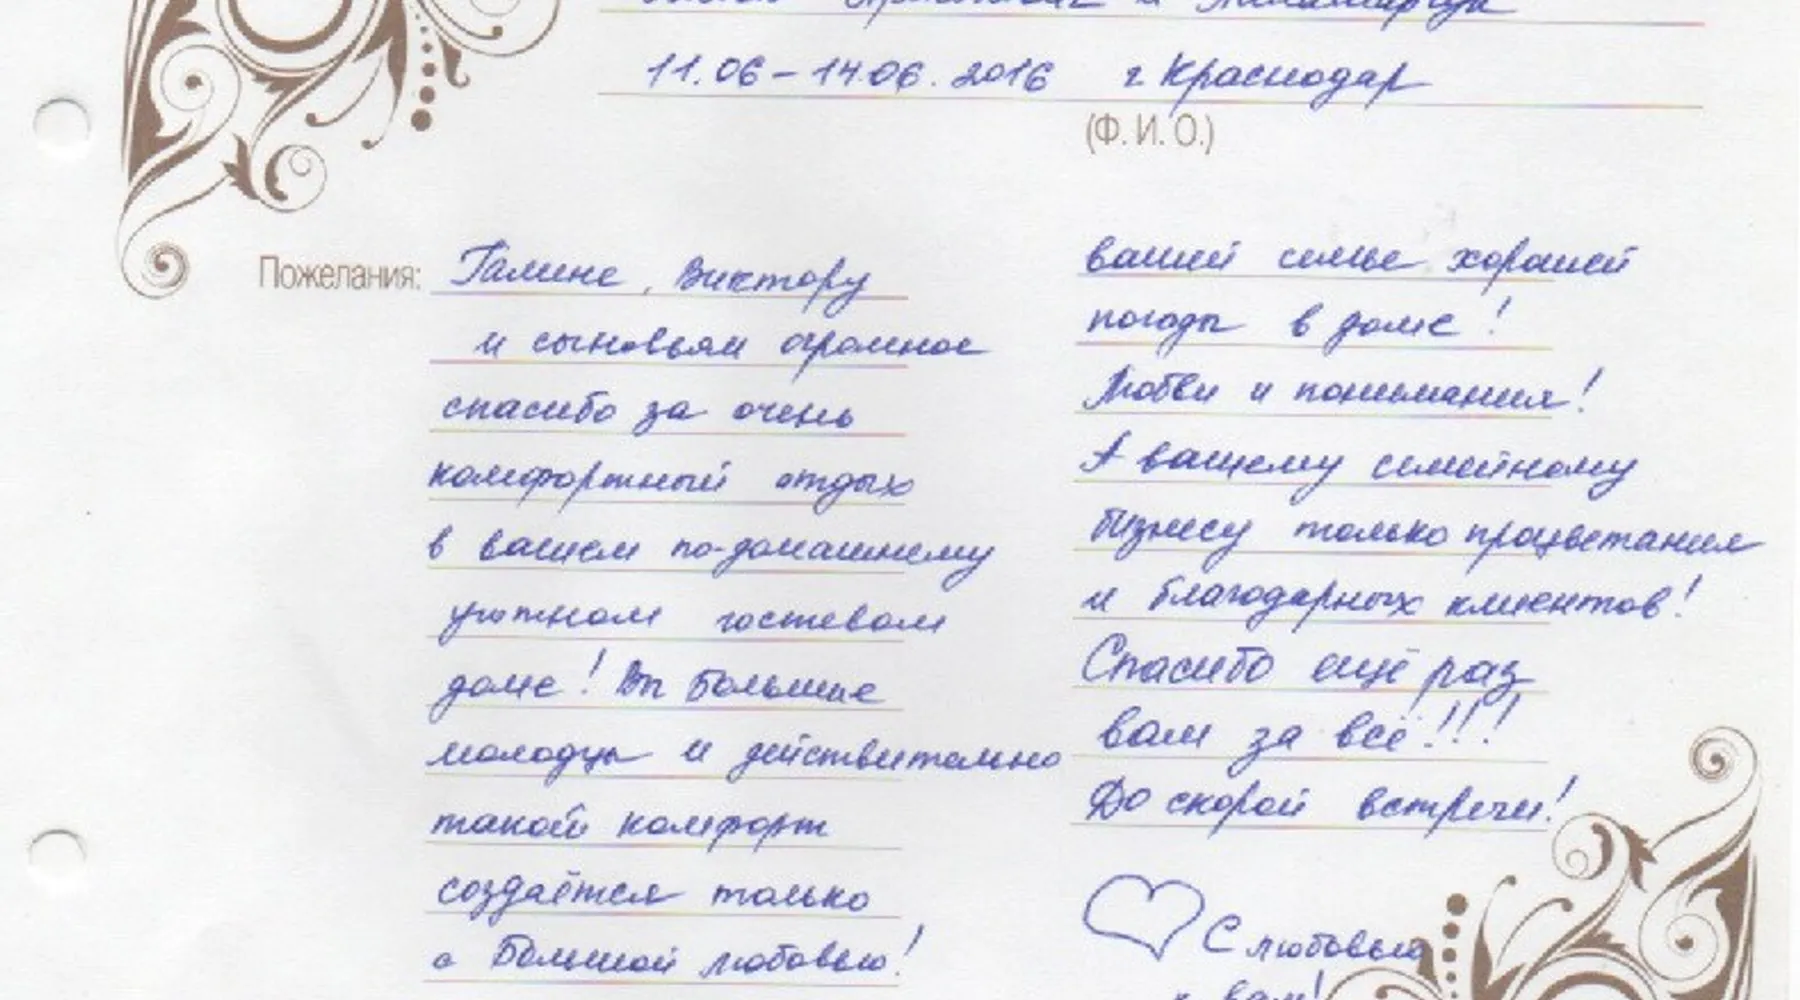 11.06 – 14.06.2016 г. Краснодар
(Ф. И. О.)
Пожелания: Галине, Виктору
и сыновьям огромное
спасибо за очень
комфортный отдых
в вашем по-домашнему
уютном гостевом
доме! Вы большие
молодцы и действительно
такой комфорт
создаётся только
с большой любовью!
вашей семье хорошей
погоды в доме!
Любви и понимания!
А вашему семейному
бизнесу только процветания
и благодарных клиентов!
Спасибо ещё раз
вам за всё!!!
До скорой встречи!
С любовью
к вам!